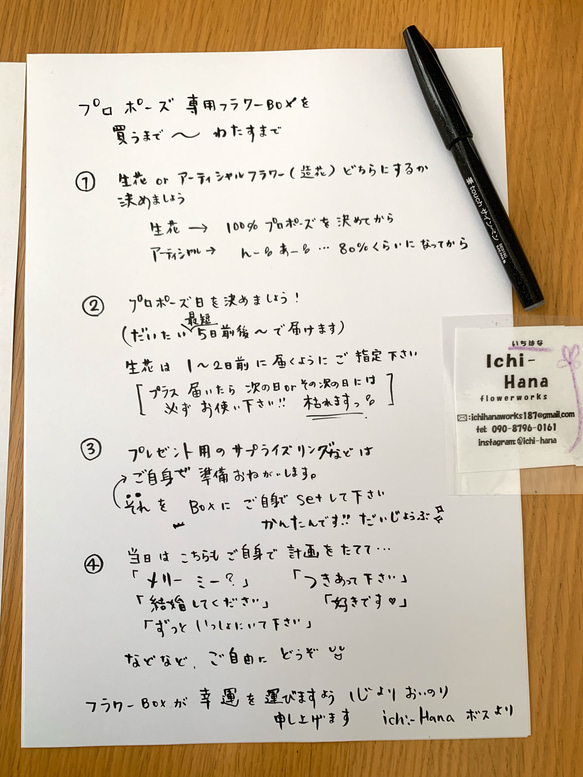 プロポーズ 専用フラワーBOXを
買うまで 〜 わたすまで
① 生花 or アーティシャルフラワー(造花) どちらにするか
決めましょう
生花 → 100% プロポーズを決めてから
アーティシャル → んーるあーる… 80%くらいになってから
② プロポーズ日を決めましょう!
最短
(だいたい5日前後〜で届けます)
生花は 1〜2日前に届くようにご指定下さい
[プラス 届いたら 次の日orその次の日には
必ず お使い下さい!! 枯れますっ。]
③ プレゼント用のサプライズリングなどは
ご自身で 準備おねがいします。
それを Boxに ご自身で setして下さい
かんたんです!! だいじょうぶ
④ 当日は こちらも ご自身で 計画をたてて…
「メリー ミー?」 「つきあって下さい」
「結婚してください」 「好きです♡」
「ずっと いっしょにいて下さい」
などなど、ご自由に どうぞ
フラワーBoxが 幸運を運びますよう 心より おいのり
申し上げます ichi-Hana ボスより
筆touchサインペン
いちはな
Ichi-
Hana
flowerworks
✉:ichihanaworks187@gmail.com
tel: 090-8796-0161
instagram:@ichi-hana